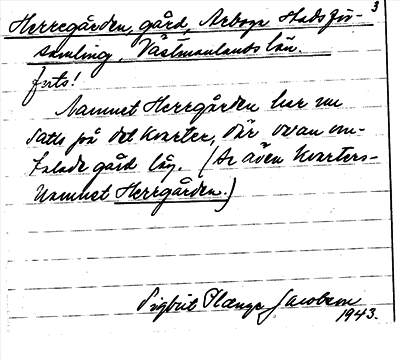 3
Herregården, gård, Arboga Stadsför-
samling, Västmanlands län.
forts!
Namnet Herrgården har nu
satts på det kvarter, där ovan om-
talade gård låg. (Se även kvarters-
namnet Herrgården.)
Sigbrit Plænge Jacobson
1943.